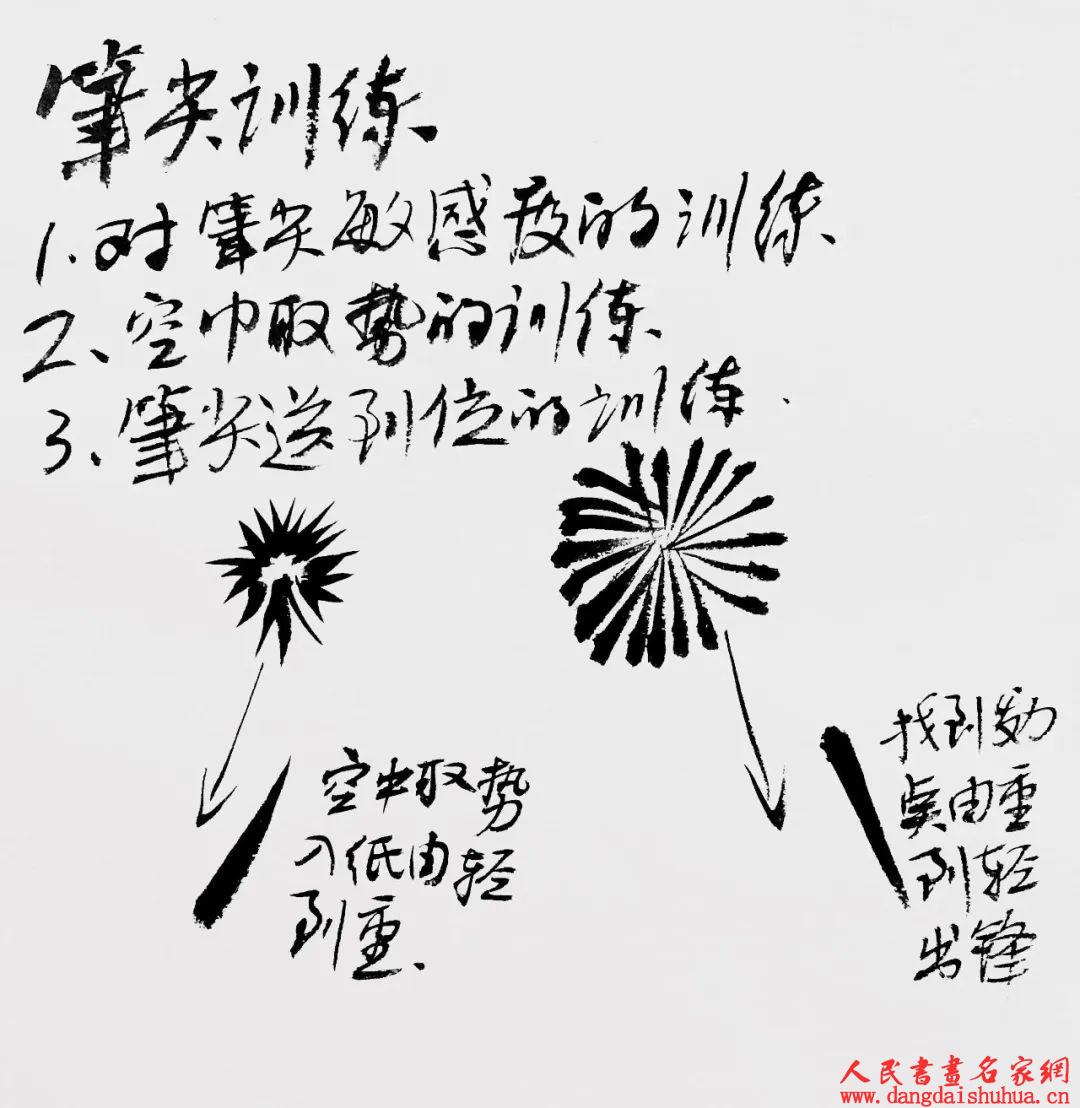 筆尖训练
1.对筆尖敏感度的训练
2、空中取势的训练
3、筆尖送到位的训练.
空中取势
入纸由轻
到重.
找到发力
点由重
到轻
出锋
人民書畫名家網
www.dangdaishuhua.cn